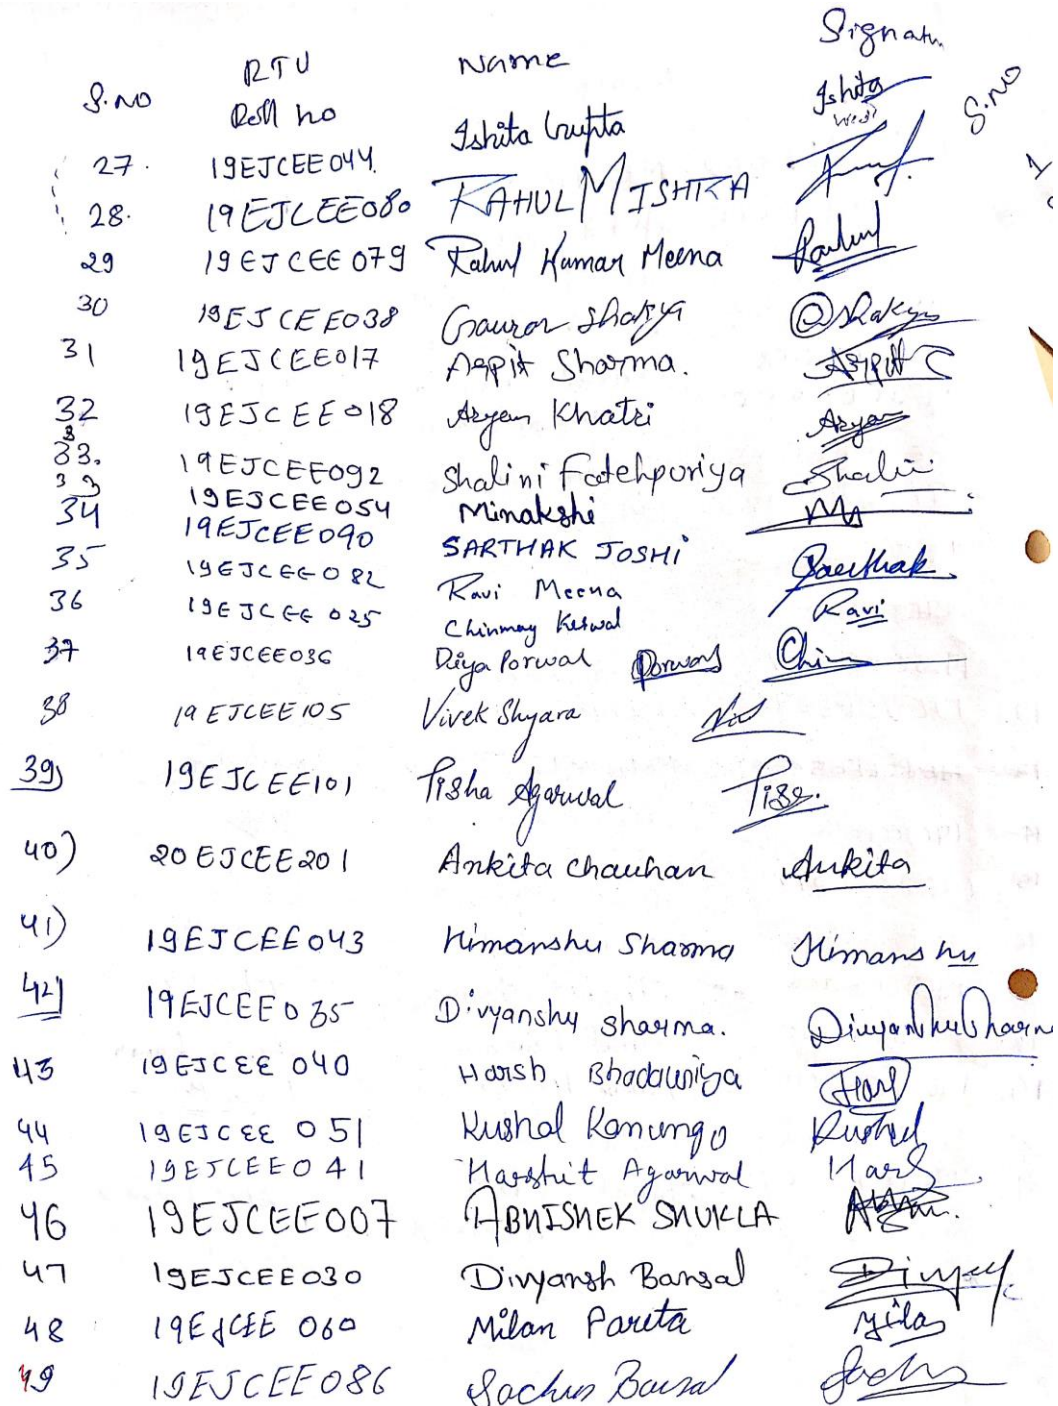 S.NO RTU Roll no Name Signatu
27. 19EJCEE044. Ishita Gupta Ishita
28. 19EJCEE080 RAHUL MISHRA
29 19EJCEE079 Rahul Kumar Meena Rahul
30 19EJCEE038 Gaurav Shakya Shakya
31 19EJCEE017 Arpit Sharma. Arpit
32 19EJCEE018 Aryan Khatri Aryan
33. 19EJCEE092 Shalini Fatehpuriya Shalini
33 19EJCEE054 Minakshi
34 19EJCEE090 SARTHAK JOSHI Sarthak
35 19EJCEE082 Ravi Meena Ravi
36 19EJCEE025 Chinmay Keswal Chin
37 19EJCEE036 Diya Porwal Porwal
38 19EJCEE105 Vivek Shyara
39) 19EJCEE101 Tisha Agarwal
40) 20EJCEE201 Ankita Chauhan Ankita
41) 19EJCEE043 Himanshu Sharma Himanshu
42) 19EJCEE035 Divyanshu Sharma. Divyanshu Sharma
43 19EJCEE040 Harsh Bhadauriya Harsh
44 19EJCEE051 Kushal Kanungo Kushal
45 19EJCEE041 Harshit Agarwal Harsh
46 19EJCEE007 ABHISHEK SHUKLA
47 19EJCEE030 Divyansh Bansal
48 19EJCEE060 Milan Pareta Milan
49 19EJCEE086 Sachin Bansal Sachin
S.NO